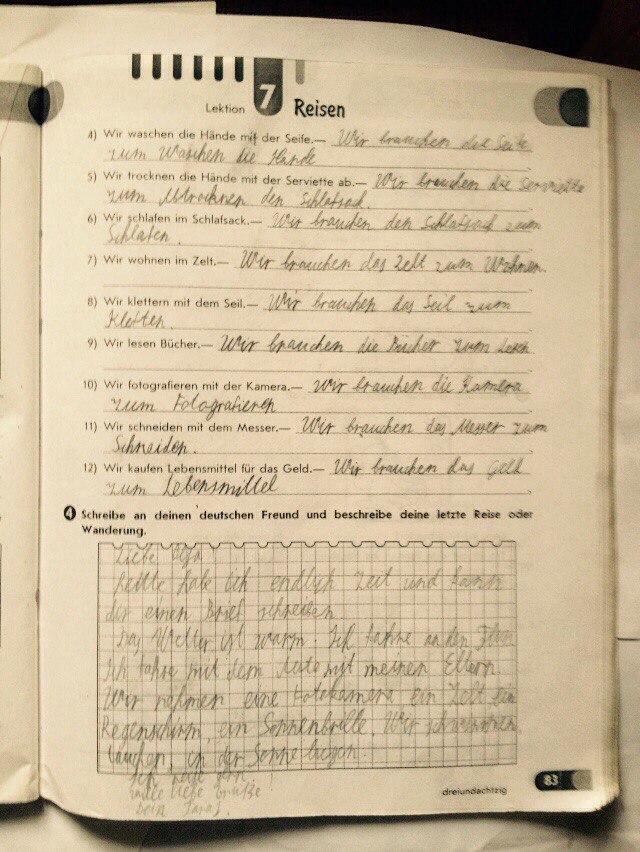 Lektion 7 Reisen
4) Wir waschen die Hände mit der Seife.— Wir brauchen die Seife
zum Waschen die Hände
5) Wir trocknen die Hände mit der Serviette ab.— Wir brauchen die Serviette
zum Abtrocknen den Schlafsack.
6) Wir schlafen im Schlafsack.— Wir brauchen den Schlafsack zum
Schlafen.
7) Wir wohnen im Zelt.— Wir brauchen das Zelt zum Wohnen.
8) Wir klettern mit dem Seil.— Wir brauchen das Seil zum
Klettern.
9) Wir lesen Bücher.— Wir brauchen die Bücher zum Lesen
10) Wir fotografieren mit der Kamera.— Wir brauchen die Kamera
zum Fotografieren
11) Wir schneiden mit dem Messer.— Wir brauchen das Messer zum
Schneiden.
12) Wir kaufen Lebensmittel für das Geld.— Wir brauchen das Geld
zum Lebensmittel
4 Schreibe an deinen deutschen Freund und beschreibe deine letzte Reise oder
Wanderung.
Liebe
habe ich endlich Zeit und kann
dir einen Brief schreiben
Das Wetter ist warm. Ich fahre an den
Ich fahre mit dem Auto mit meinen Eltern
Wir nehmen eine Fotokamera ein Zelt ein
Regenschirm, ein Sonnenbrille. Wir schwimmen
tauchen, in der Sonne liegen.
viele liebe Grüße
Dein
83
dreiundachtzig